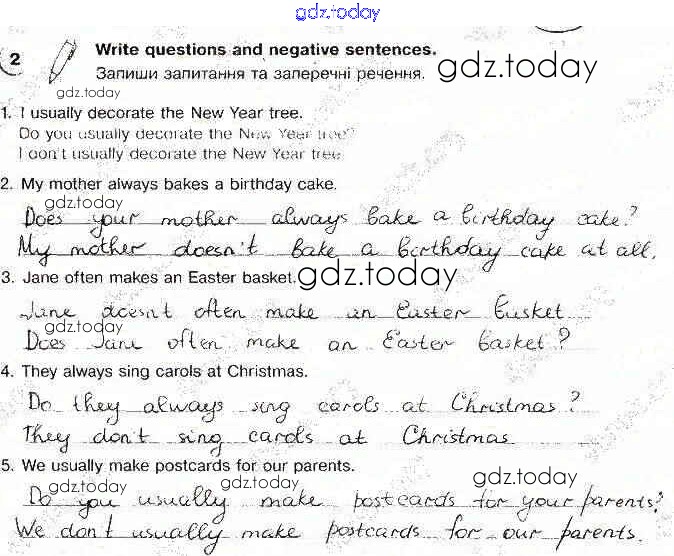 gdz.today
2 Write questions and negative sentences.
Запиши запитання та заперечні речення. gdz.today
gdz.today
1. I usually decorate the New Year tree.
Do you usually decorate the New Year tree?
I don't usually decorate the New Year tree
2. My mother always bakes a birthday cake.
gdz.today
Does your mother always bake a birthday cake?
My mother doesn't bake a birthday cake at all.
3. Jane often makes an Easter basket. gdz.today
Jane doesn't often make an Easter basket
gdz.today
Does Jane often make an Easter basket?
4. They always sing carols at Christmas.
Do they always sing carols at Christmas?
They don't sing carols at Christmas
5. We usually make postcards for our parents.
gdz.today gdz.today gdz.today
Do you usually make postcards for your parents?
We don't usually make postcards for our parents.